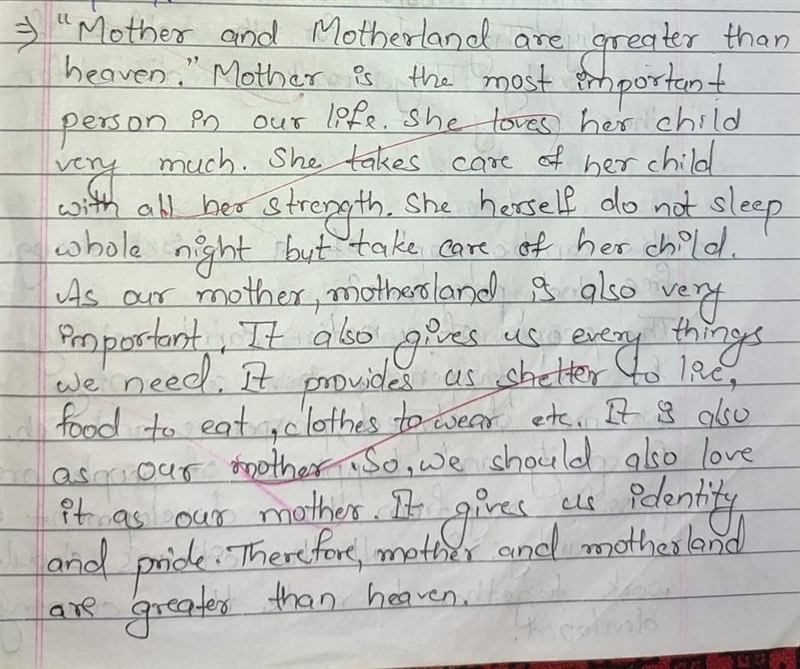 ⇒ "Mother and Motherland are greater than
heaven." Mother is the most important
person in our life. She loves her child
very much. She takes care of her child
with all her strength. She herself do not sleep
whole night but take care of her child.
As our mother, motherland is also very
important. It also gives us every things
we need. It provides us shelter to live,
food to eat, clothes to wear etc. It is also
as our mother. So, we should also love
it as our mother. It gives us identity
and pride. Therefore, mother and motherland
are greater than heaven.